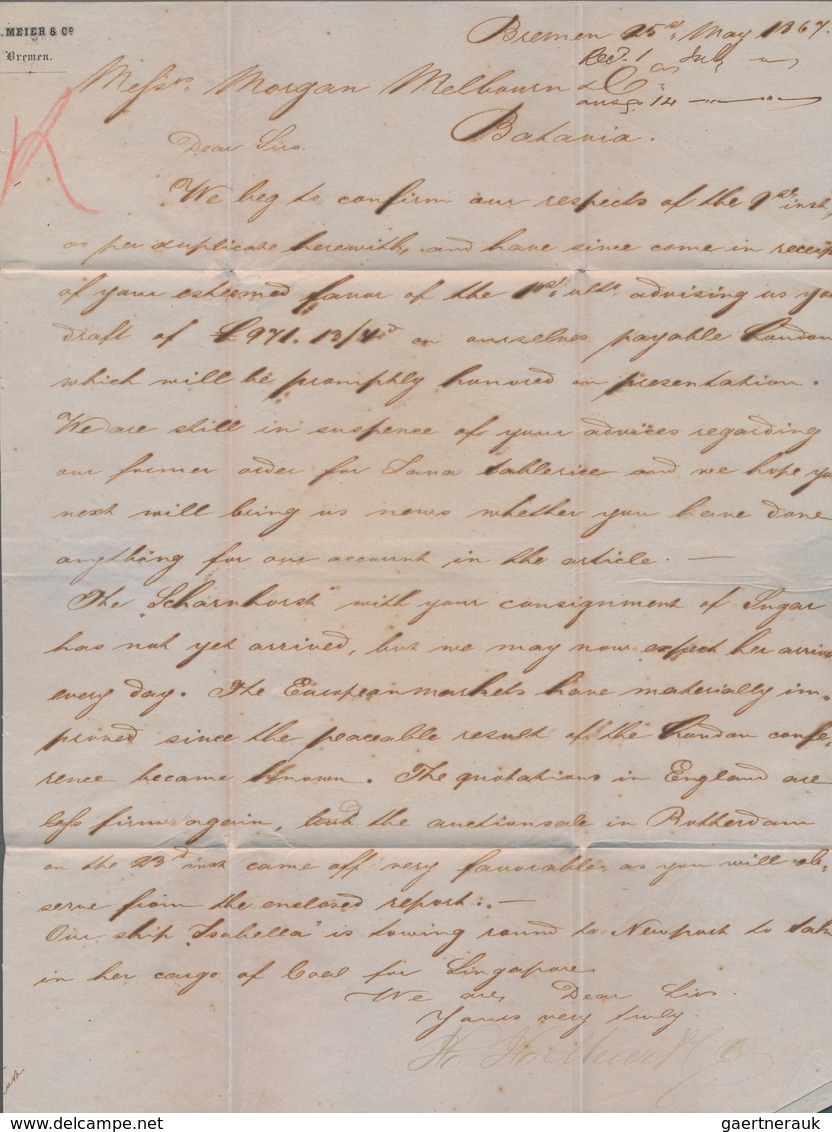 . MEIER & Cº
Bremen.
Bremen 25st May 1867.
Recd. 1 July
Messrs. Morgan Melbourn & Co.
answ. 14
Batavia.
Dear Sirs.
We beg to confirm our respects of the 9st inst,
as per duplicate herewith, and have since come in receip
of your esteemed favor of the 1st ulto advising us yo
draft of £971. 13/4d on ourselves payable London
which will be promptly honored on presentation.
We are still in suspence of your advices regarding
our former order for Java tablerice and we hope yo
next will bring us news whether you have done
anything for our account in the article. —
The "Scharnhorst" with your consignment of Sugar
has not yet arrived, but we may now expect her arriva
every day. The European markets have materially im-
proved since the peaceable result of the London confe-
rence became known. The quotations in England are
less firm again, but the auctionsale in Rotterdam
on the 23d inst came off very favorable, as you will ob-
serve from the enclosed report. —
Our ship "Isabella" is towing round to Newport to take
in her cargo of Coal for Singapore
We are, Dear Sirs
Yours very truly
H. H. Meier & Co
gaertnerauk